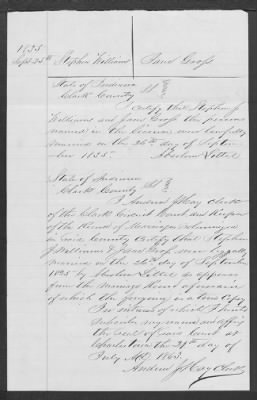 1835
Sept 25th Stephen Williams Jane Gross
State of Indiana
Clark County Sct
I certify that Stephen J
Williams and Jane Gross the persons
named in the license were lawfully
married on the 25th day of Septem
-ber 1835. Absalom Littell
State of Indiana
Clark County Sct
I Andrew J Hay clerk
of the Clark Circuit Court and Keeper
of the Record of Marriages solemnized
in said County Certify that Stephen
J Williams & Jane Gross were legally
married on the 25th day of September
1835 by Absalom Littell as appears
from the Marriage Record of
of which the forgoing is a true Copy
In witness of which I hereunto
subscribe my name and affix
the seal of said Court at
Charlestown the day of
July AD 1863.
Andrew J Hay Clerk